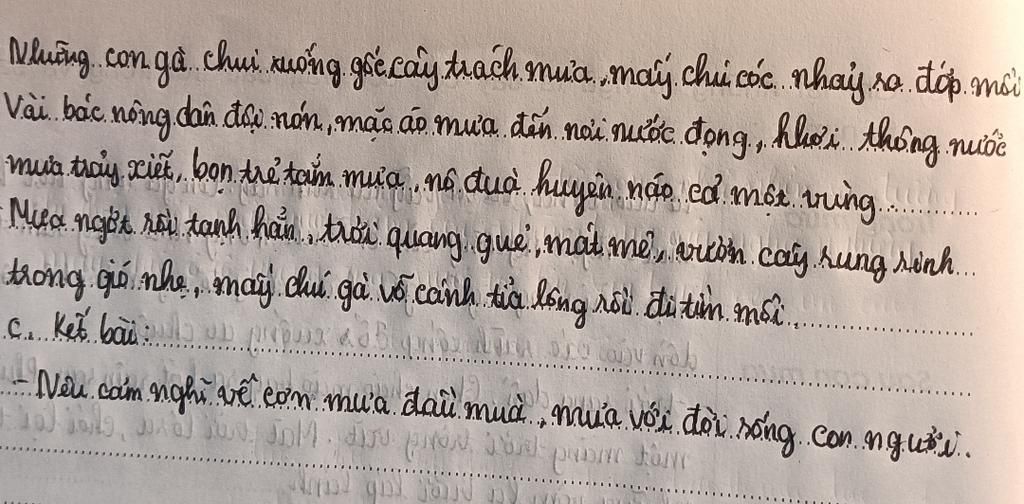 Những con gà chui xuống gốc cây trách mưa, mấy chú cóc nhảy ra đớp mồi
Vài bác nông dân đội nón, mặc áo mưa đến nơi nước đọng, khơi thông nước
mưa trảy xiết, bọn trẻ tắm mưa, nô đùa huyên náo cả một vùng
Mưa ngớt rồi tạnh hẳn, trời quang quẻ, mát mẻ, vườn cây rung rinh
trong gió nhẹ, mấy chú gà vỗ cánh tỉa lông rồi đi tìm mồi.
c. Kết bài:
- Nêu cảm nghĩ về cơn mưa đầu mùa, mưa với đời sống con người.